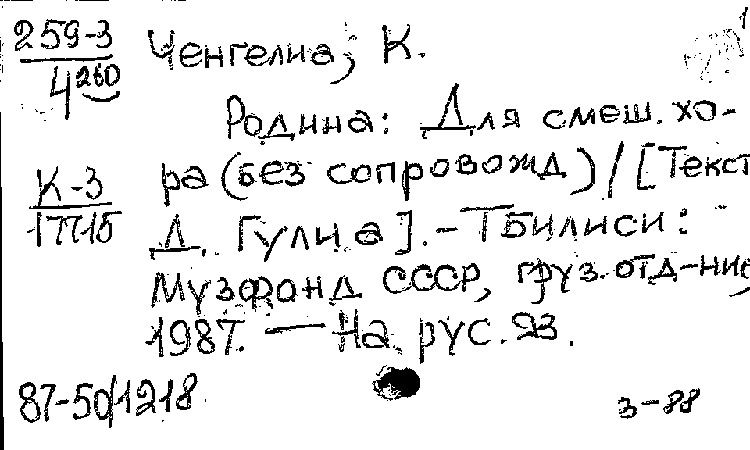 259-3 Ченгелиа, К.
4 260
Родина: Для смеш. хо-
К-3 ра (без сопровожд) / [Текст
17715 Д. Гулиа]. - Тбилиси:
Музфонд СССР, груз. отд-ние,
1987. — На рус. яз.
87-50/1218
3-88